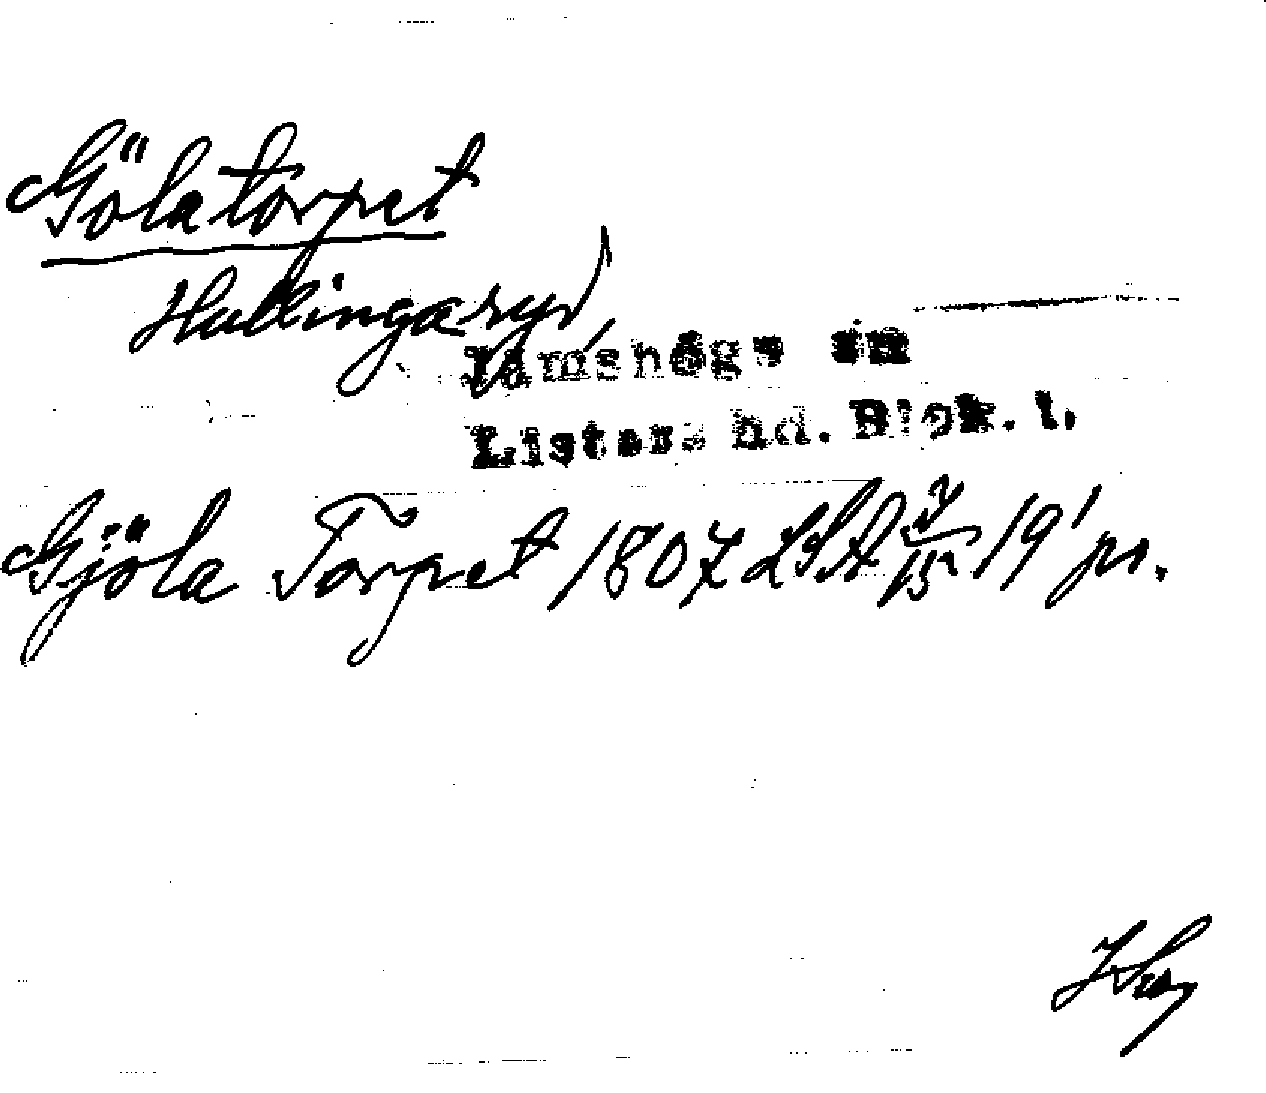 Gölatorpet
Hallingaryd
Jämshögs sn
Listers hd. Blek. l.
Gjöla Torpet 1807 LSA 7/15 19' pr.